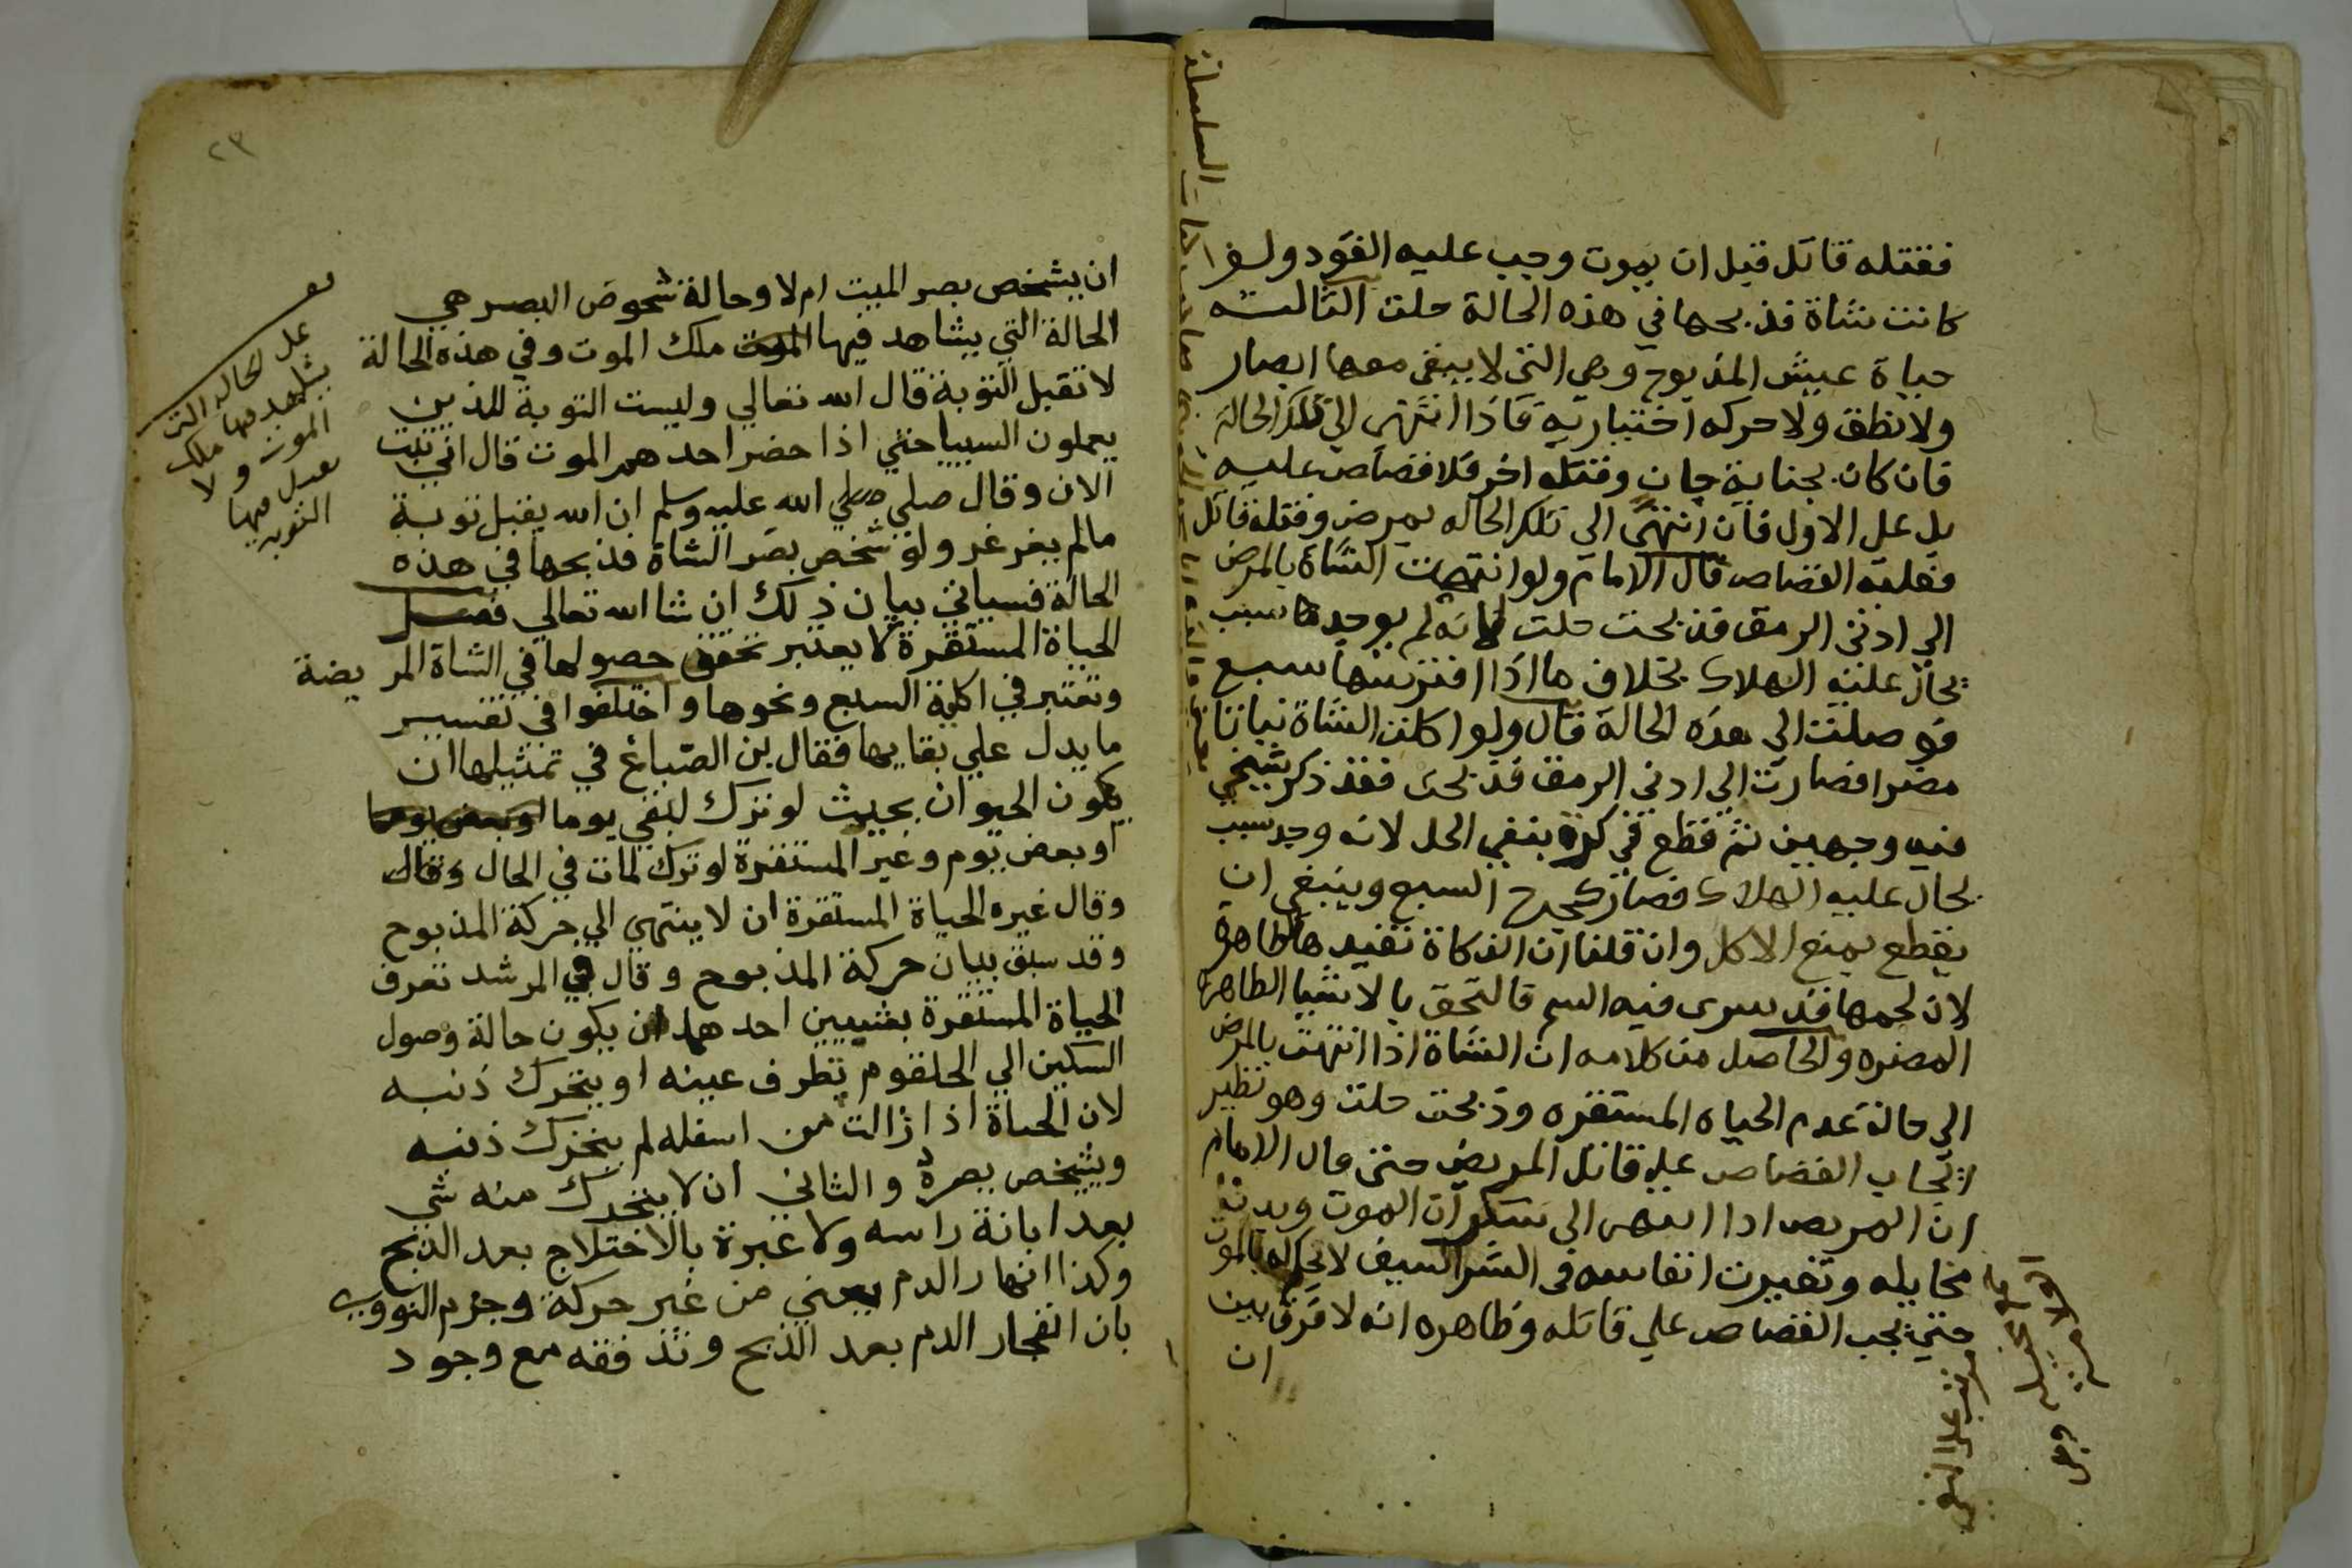 فقتله قاتل قبل ان يموت وجب عليه القود ولو
كانت شاة فذبحها في هذه الحالة حلت الثالثه
حياة عيش المذبوح وهي التي لا يبقى معها ابصار
ولا نطق ولا حركه اختياريه فاذا انتهى الي تلك الحالة
فان كان بجناية جان وقتله اخر فلا قصاص عليه
بل على الاول فان انتهى الى تلك الحاله بمرض وقتله قاتل
فعليه القصاص قال الامام ولو انتهت الشاة بالمرض
الى ادنى الرمق فذبحت حلت لانه لم يوجد ها سبب
يحال عليه الهلاك بخلاف ما اذا افترسها سبع
فوصلت الي هذه الحالة قال ولو اكلت الشاة نباتا
مضرا فصارت الي ادني الرمق فذبحت فقد ذكر شيخي
فيه وجهين ثم قطع في كرة بنفي الحل لانه وجد سبب
يحال عليه الهلاك فصار كجرح السبع وينبغي ان
يقطع بمنع الاكل وان قلنا ان الذكاة تفيد ها لطاهره
لان لحمها قد سرى فيه السم فالتحق بالاشيا الطاهره
المضره والحاصل من كلامه ان الشاة اذا انتهت بالمرض
الى حالة عدم الحياه المستقره وذبحت حلت وهو نظير
ايجاب القصاص علي قاتل المريض حتى قال الامام
ان المريض اذا انتهى الى سكرات الموت وبدت
مخايله وتغيرت انفاسه في الشراسيف لا يحكم له بالموت
حتي يجب القصاص علي قاتله وظاهره انه لا فرق بين
ان
٢٣
ان يشخص بصر الميت ام لا وحالة شخوص البصر هي
الحالة التي يشاهد فيها الموت ملك الموت وفي هذه الحالة
لا تقبل التوبة قال الله تعالي وليست التوبة للذين
يعملون السييات حتي اذا حضر احدهم الموت قال اني تبت
الان وقال صلي صلي الله عليه وسلم ان الله يقبل توبة
مالم يغرغر ولو شخص بصر الشاة فذبحها في هذه
الحالة فسياتي بيان ذلك ان شا الله تعالي فصل
الحياة المستقرة لا يعتبر تحقق حصولها في الشاة المريضة
وتعتبر في اكلة السبع ونحوها واختلفوا في تفسير
ما يدل علي بقايها فقال بن الصباغ في تمثيلها ان
يكون الحيوان بحيث لو ترك لبقي يوما او بعض يوما
او بعض يوم وغير المستقرة لو ترك لمات في الحال وقال
وقال غيره الحياة المستقرة ان لا ينتهي الي حركة المذبوح
وقد سبق بيان حركة المذبوح وقال في المرشد تعرف
الحياة المستقرة بشييين احدهما ان يكون حالة وصول
السكين الي الحلقوم تطرف عينه او يتحرك ذنبه
لان الحياة اذا زالت من اسفله لم يتحرك ذنبه
ويشخص بصره والثاني ان لا يتحرك منه شي
بعد ابانة راسه ولا عبرة بالاختلاج بعد الذبح
وكذا انهار الدم يعني من غير حركة وجزم النووي
بان انفجار الدم بعد الذبح وتدفقه مع وجود
على الحاله التى
يشاهد فيها ملك
الموت ولا
تقبل فيها
التوبه